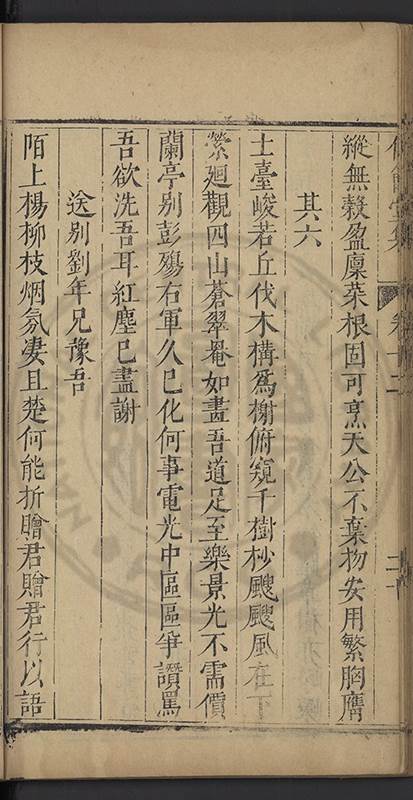 縱無穀盈廩菜根固可烹天公不棄物安用繁胸膺
其六
土臺峻若丘伐木構爲榭俯窺千樹杪颼颼風在下
縈迴觀四山蒼翠罨如畫吾道足至樂景光不需價
蘭亭别彭殤右軍久已化何事電光中區區爭讚罵
吾欲洗吾耳紅塵已盡謝
送别劉年兄豫吾
陌上楊柳枝烟氛凄且楚何能折贈君贈君行以語